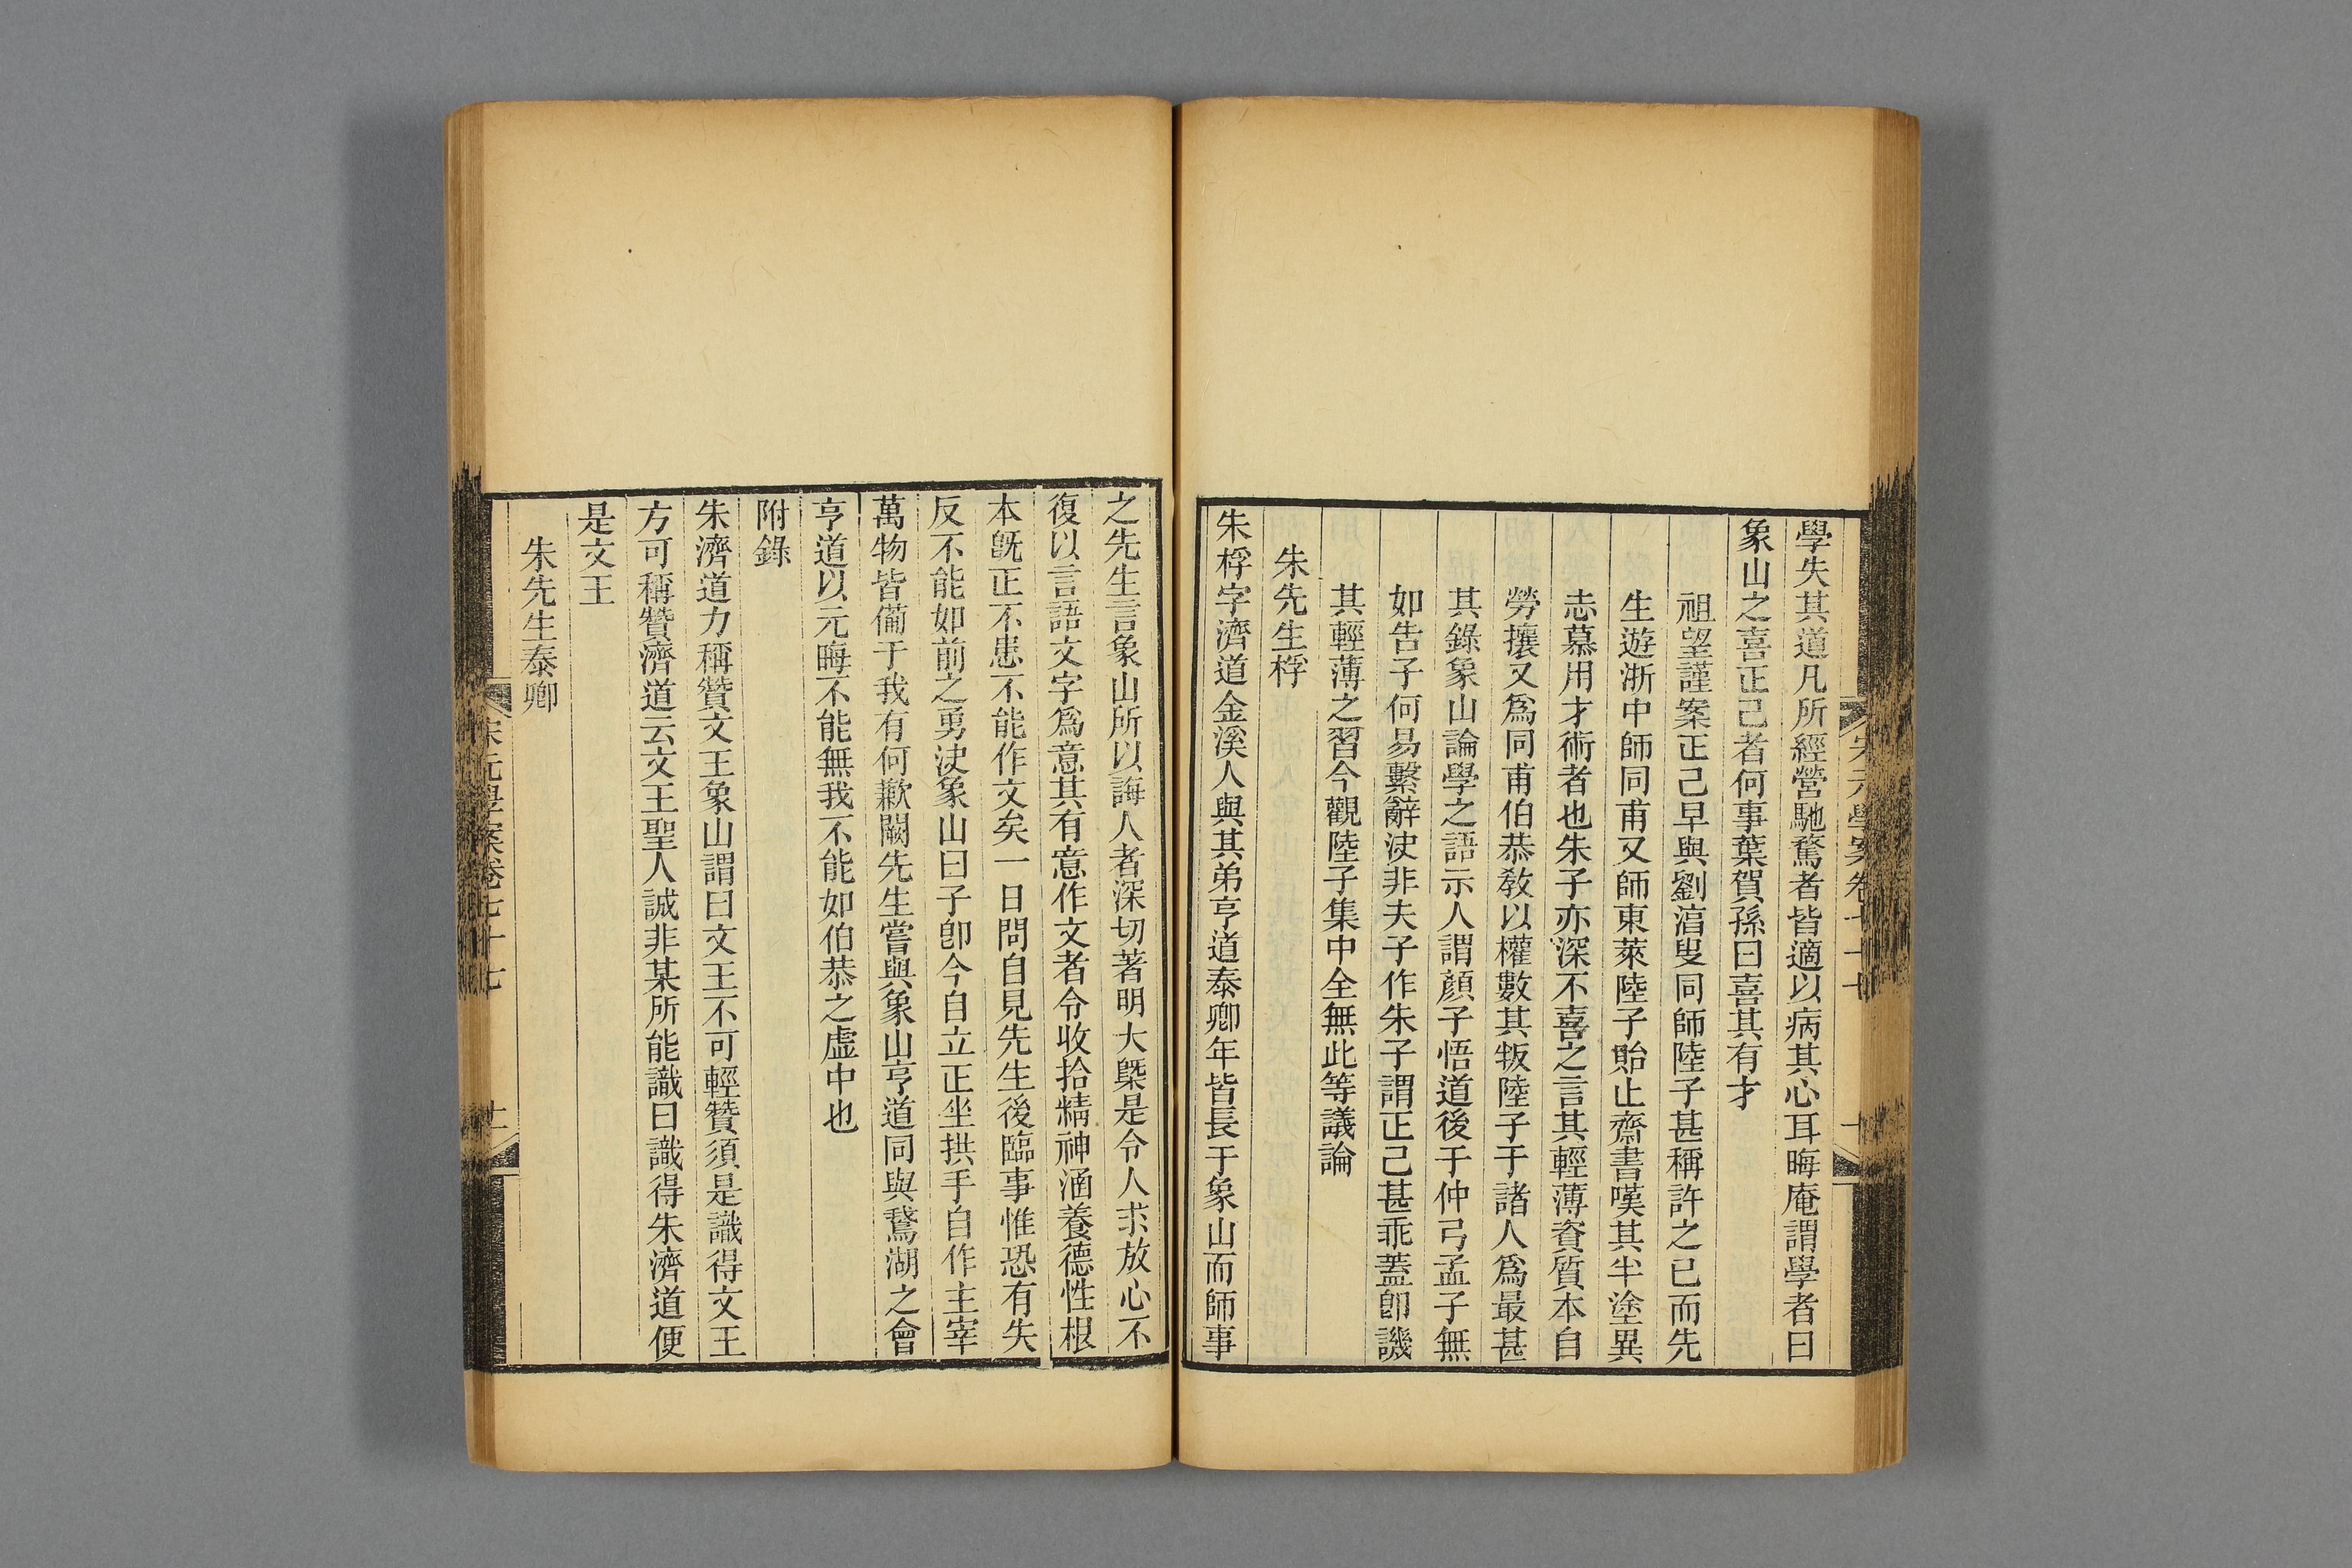 宋元學案卷七十七
學失其道凡所經營馳騖者皆適以病其心耳晦庵謂學者曰
象山之喜正己者何事葉賀孫曰喜其有才
祖望謹案正己早與劉淳叟同師陸子甚稱許之已而先
生遊浙中師同甫又師東萊陸子貽止齋書嘆其半塗異
志慕用才術者也朱子亦深不喜之言其輕薄資質本自
勞攘又爲同甫伯恭敎以權數其叛陸子于諸人爲最甚
其錄象山論學之語示人謂顏子悟道後于仲弓孟子無
如告子何易繫辭决非夫子作朱子謂正己甚乖蓋卽譏
其輕薄之習今觀陸子集中全無此等議論
朱先生桴
朱桴字濟道金溪人與其弟亨道泰卿年皆長于象山而師事
之先生言象山所以誨人者深切著明大槩是令人求放心不
復以言語文字爲意其有意作文者令收拾精神涵養德性根
本旣正不患不能作文矣一日問自見先生後臨事惟恐有失
反不能如前之勇决象山曰子卽今自立正坐拱手自作主宰
萬物皆備于我有何歉闕先生嘗與象山亨道同與鵞湖之會
亨道以元晦不能無我不能如伯恭之虛中也
附錄
朱濟道力稱贊文王象山謂曰文王不可輕贊須是識得文王
方可稱贊濟道云文王聖人誠非某所能識曰識得朱濟道便
是文王
朱先生泰卿
宋元學案卷七十七